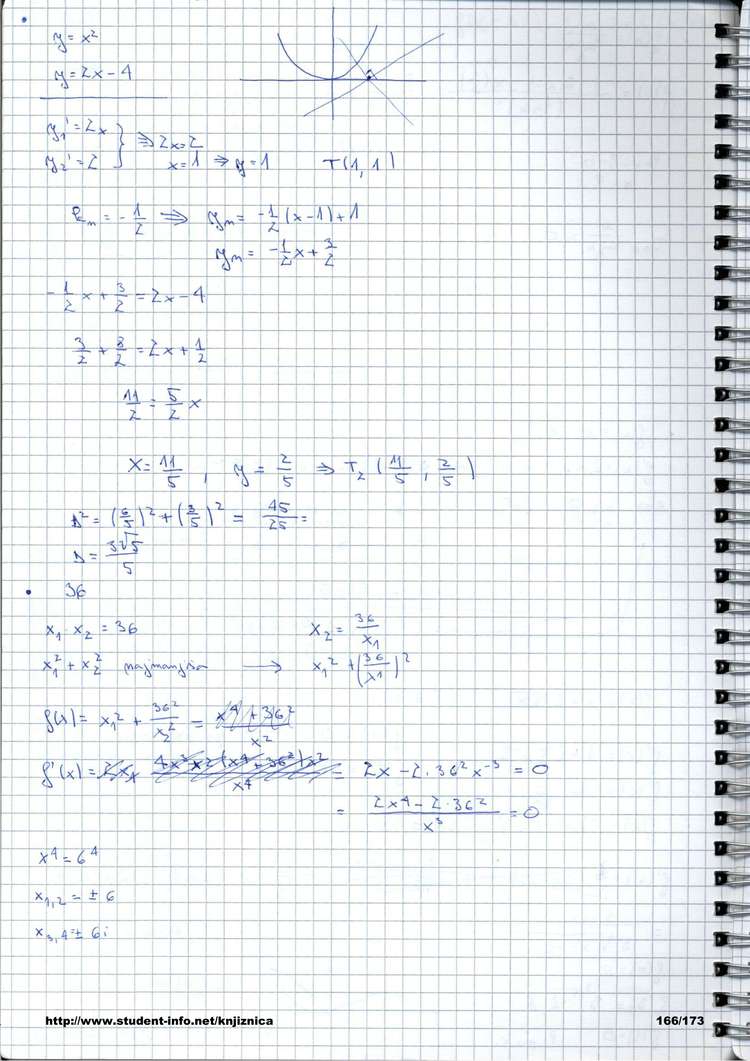 y = x²
y = 2x - 4
y₁' = 2x } ⇒ 2x = 2
y₂' = 2 x = 1 ⇒ y = 1 T(1, 1)
kₙ = -1/2 ⇒ yₙ = -1/2 (x-1) + 1
yₙ = -1/2 x + 3/2
-1/2 x + 3/2 = 2x - 4
3/2 + 8/2 = 2x + 1/2
11/2 = 5/2 x
x = 11/5 , y = 2/5 ⇒ T₂ (11/5 , 2/5)
s² = (6/5)² + (3/5)² = 45/25 =
s = 3√5/5
• 36
x₁ · x₂ = 36 x₂ = 36/x₁
x₁² + x₂² najmanjša → x₁² + (36/x₁)²
f(x) = x₁² + 36²/x₂² = x⁴ + 36²/x²
f'(x) = = 2x - 2·36² x⁻³ = 0
= 2x⁴ - 2·36²/x³ = 0
x⁴ = 6⁴
x₁,₂ = ± 6
x₃,₄ = ± 6i
http://www.student-info.net/knjiznica 166/173